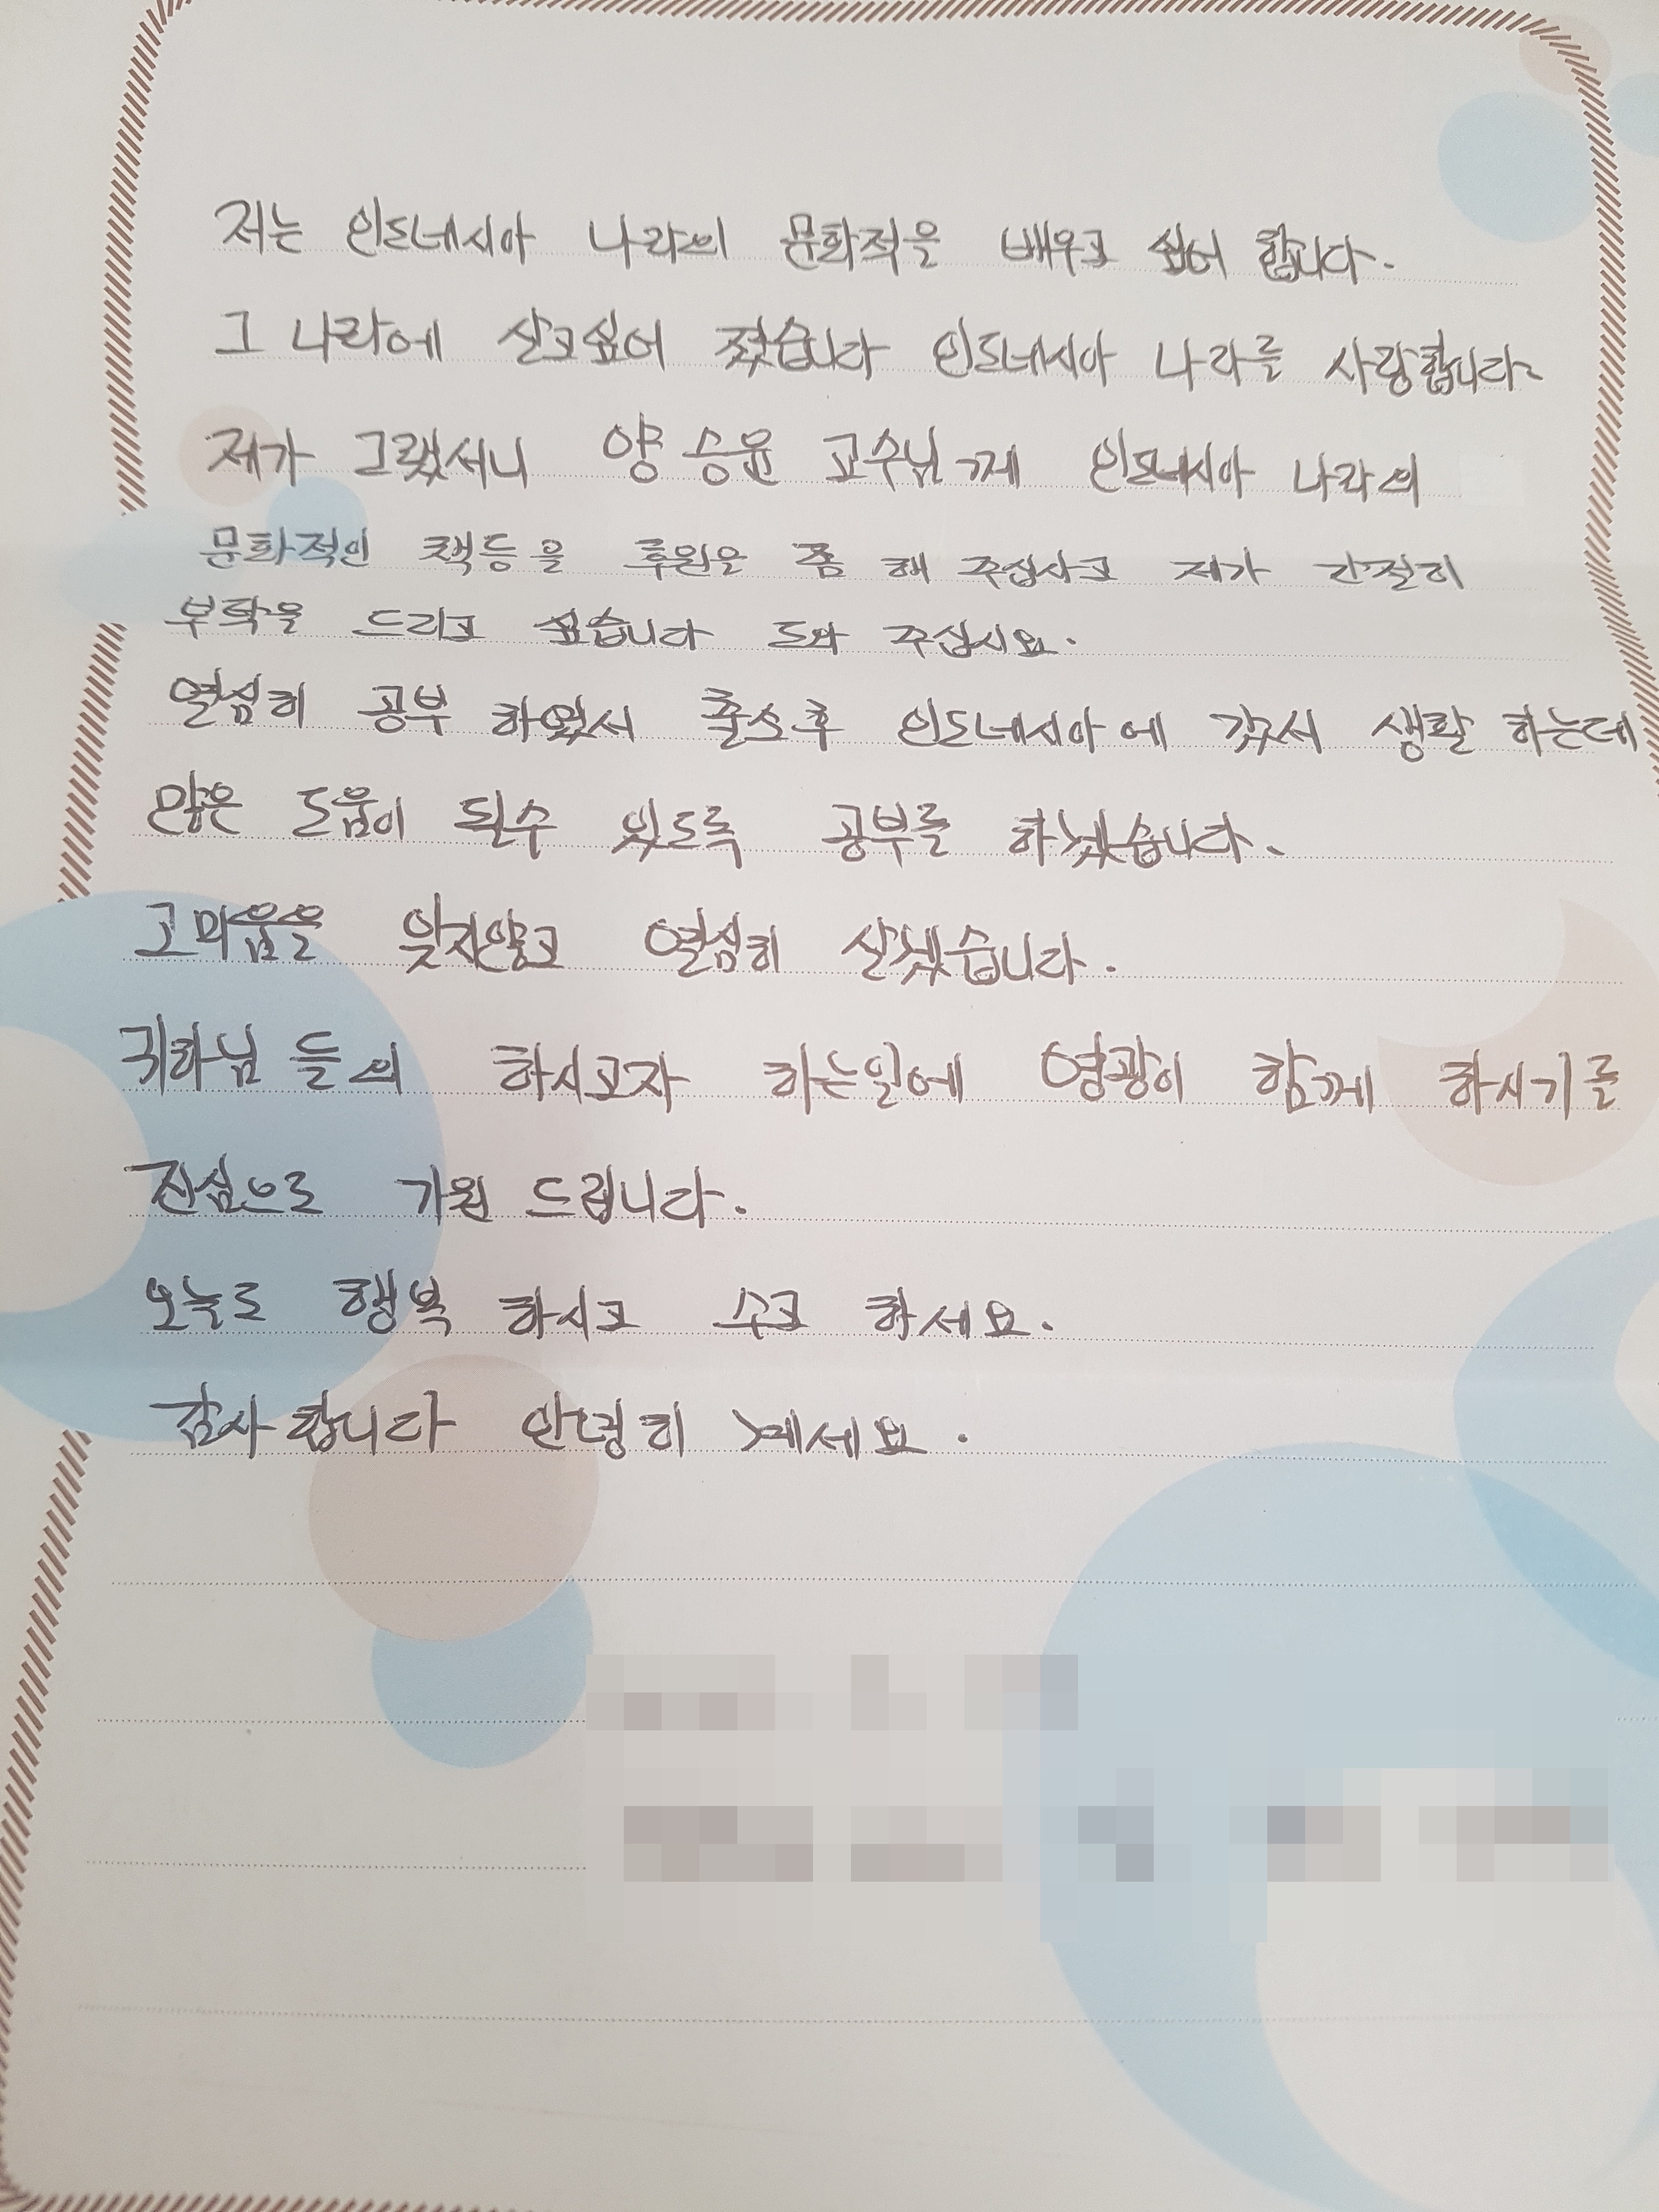 저는 인도네시아 나라의 문화적을 배우고 싶어 합니다.
그 나라에 살고싶어 졌습니다 인도네시아 나라를 사랑합니다.
제가 그랬서니 양승윤 교수님께 인도네시아 나라의
문화적인 책등을 후원을 좀 해 주십사고 제가 간절히
부탁을 드리고 싶습니다 도와 주십시요.
열심히 공부 하였서 출소후 인도네시아에 갔서 생활 하는데
많은 도움이 될수 있도록 공부를 하겠습니다.
고마움을 잊지않고 열심히 살겠습니다.
귀하님 들의 하시고자 하는일에 영광이 함께 하시기를
진심으로 기원 드립니다.
오늘도 행복 하시고 수고 하세요.
감사합니다 안녕히 계세요.